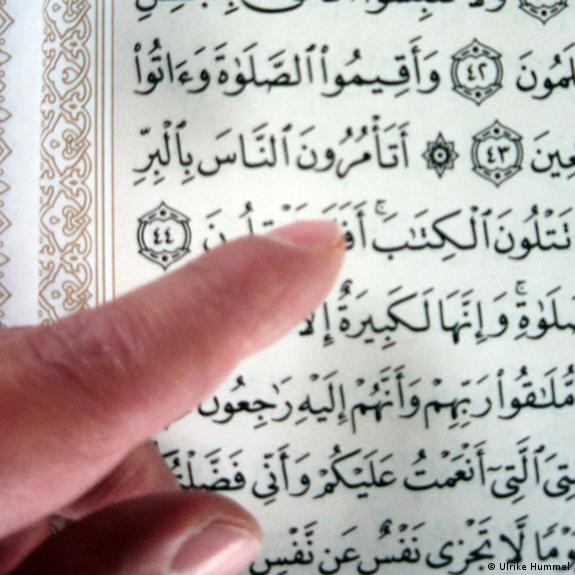 لَمُونَ ٤٢ وَأَقِيمُوا۟ ٱلصَّلَوٰةَ وَءَاتُوا۟
عِينَ ٤٣ ۞ أَتَأْمُرُونَ ٱلنَّاسَ بِٱلْبِرِّ
تَتْلُونَ ٱلْكِتَٰبَ ۚ ٤٤
صَّلَوٰةِ ۚ وَإِنَّهَا لَكَبِيرَةٌ إِلَّا
مُّلَٰقُوا۟ رَبِّهِمْ وَأَنَّهُمْ إِلَيْهِ رَٰجِعُونَ
تِىَ ٱلَّتِىٓ أَنْعَمْتُ عَلَيْكُمْ وَأَنِّى
وْمًا لَّا تَجْزِى نَفْسٌ عَن نَّفْسٍ
© Ulrike Hummel